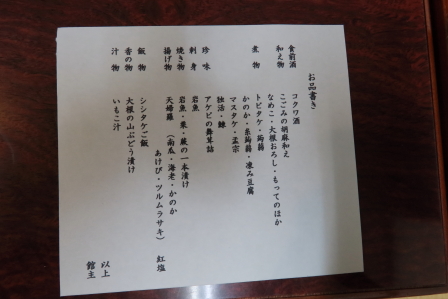 お品書き
食前酒　コクワ酒
和え物　こごみの胡麻和え
なめこ・大根おろし・もってのほか
煮物　トビタケ・蒟蒻
かのか・糸蒟蒻・凍み豆腐
マスタケ・孟宗
独活・鰊
珍味　アケビの舞茸詰
刺身　岩魚
焼き物　岩魚・栗・蕨の一本漬け
揚げ物　天婦羅　（南瓜・海老・かのか
あけび・ツルムラサキ）　紅塩
飯物　シシタケご飯
香の物　大根の山ぶどう漬け
汁物　いもこ汁
以上
館主